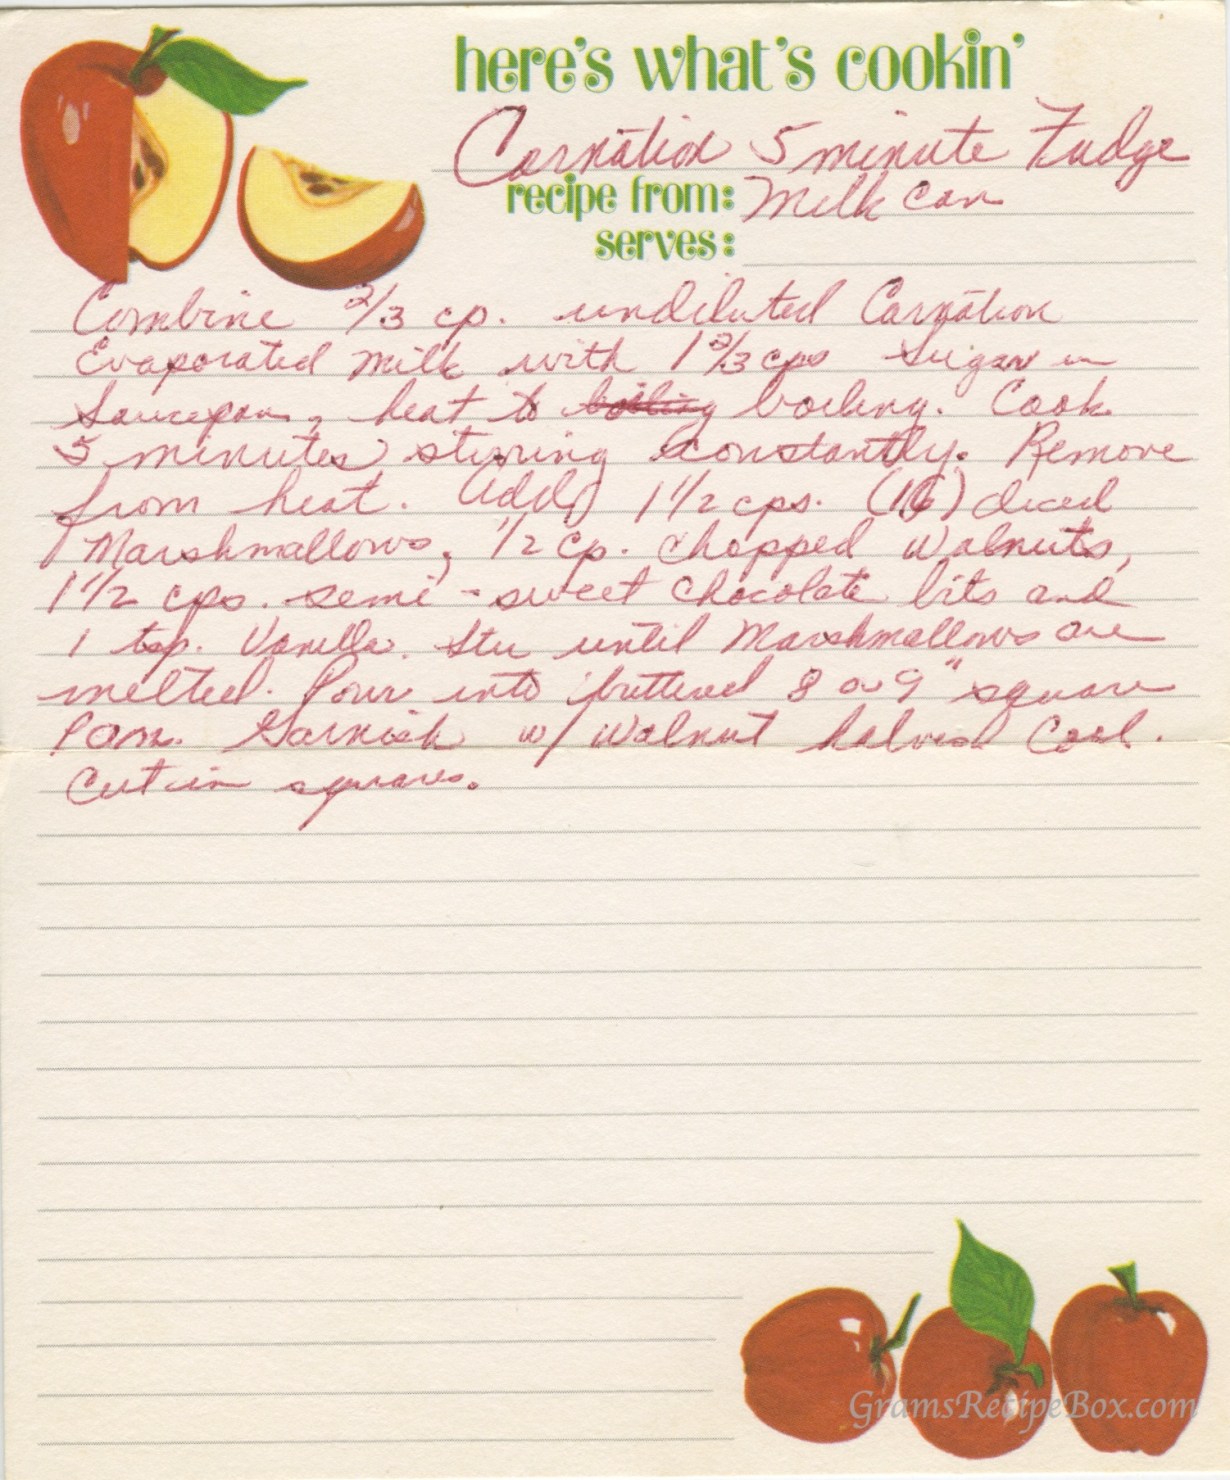 here's what's cookin'
Carnation 5 minute Fudge
recipe from: Milk can
serves:
Combine 2/3 cp. undiluted Carnation
Evaporated Milk with 1 2/3 cps Sugar in
Saucepan, heat to boiling boiling. Cook
5 minutes stirring constantly. Remove
from heat. Add 1 1/2 cps. (16) diced
Marshmallows, 1/2 cp. chopped walnuts,
1 1/2 cps. semi-sweet chocolate bits and
1 tsp. Vanilla. Stir until Marshmallows are
melted. Pour into buttered 8 or 9" square
pan. Garnish w/ walnut halves Cool.
Cut in squares.
GramsRecipeBox.com